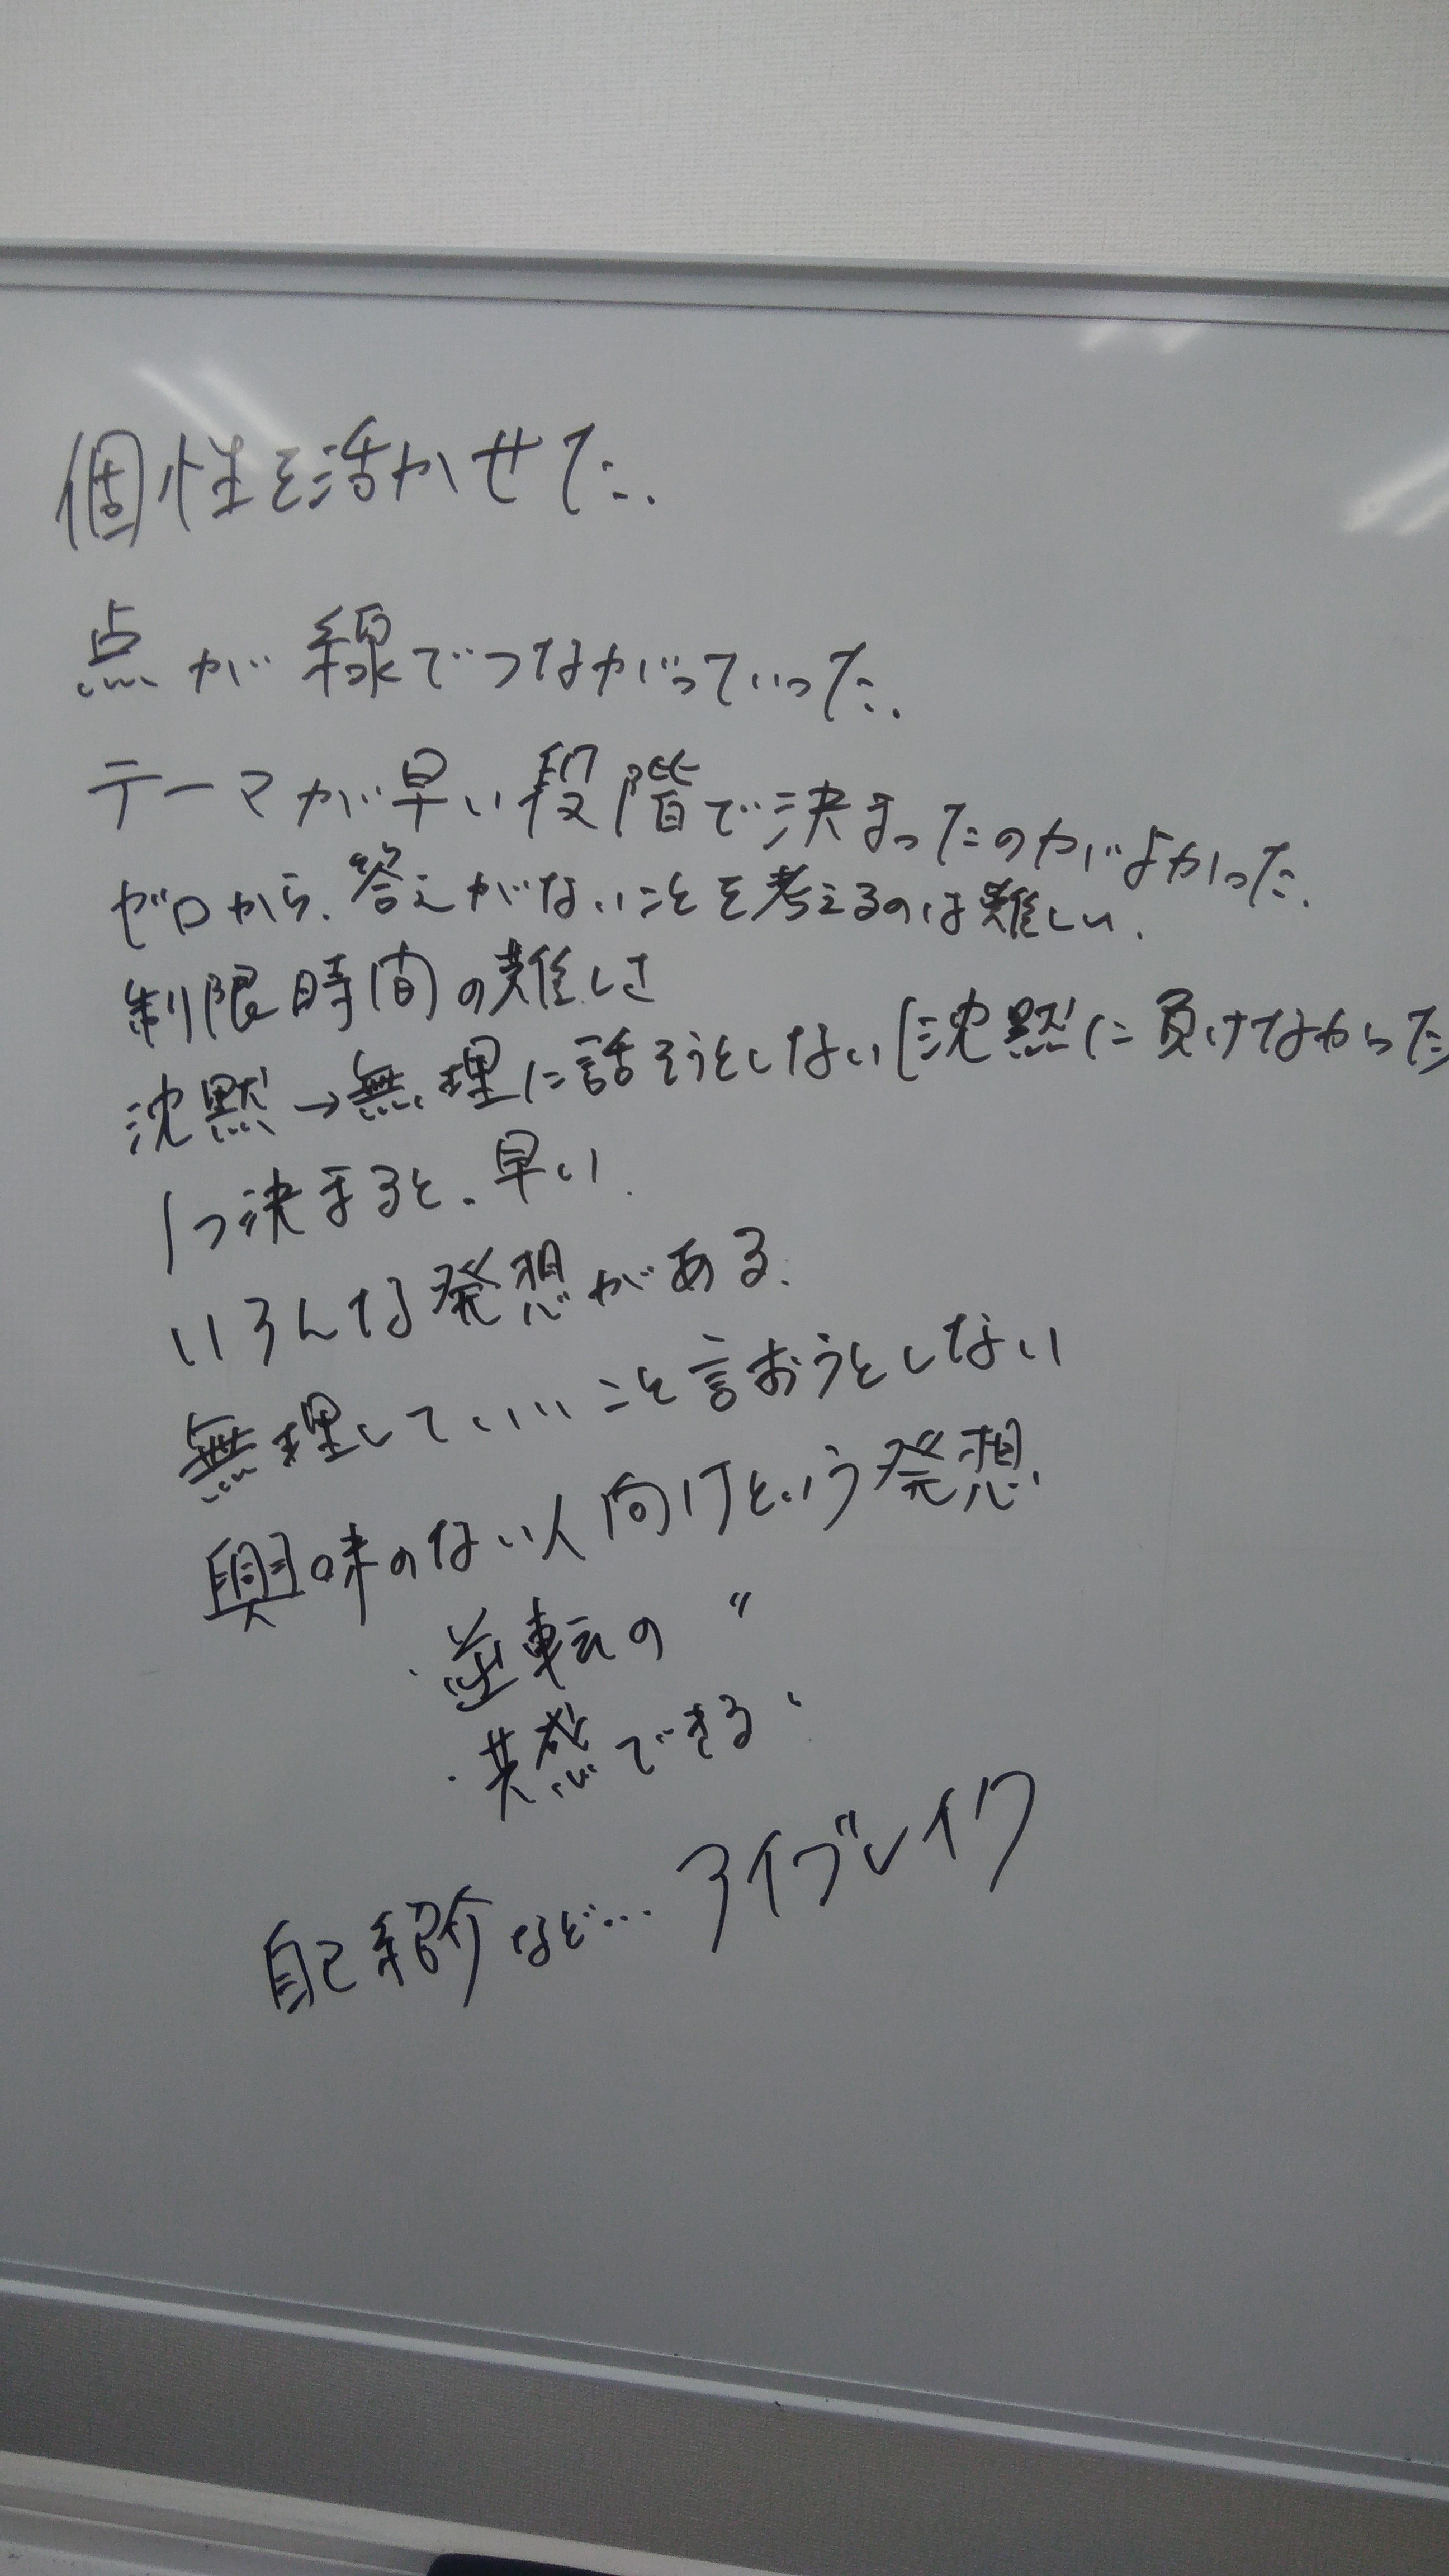 個性を活かせた.
点が線でつながっていった.
テーマが早い段階で決まったのがよかった.
ゼロから、答えがないことを考えるのは難しい.
制限時間の難しさ
沈黙→無理に話そうとしない(沈黙に負けなかった
1つ決まると、早い.
いろんな発想がある.
無理していいこと言おうとしない
興味のない人向けという発想.
・逆転の 〃
・共感できる 〃
自己紹介など… アイブレイク